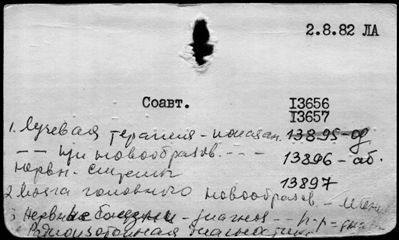 2.8.82 ЛА
Соавт. I3656
I3657
1. Лучевая терапия - показан. 13895-од
- - при новообразов. - - - 13896-аб.
нервн. системы
13897
2 Мозга головного новообразов. -
3 Нервные болезни - диагноз -
Радиоизотопная диагностика